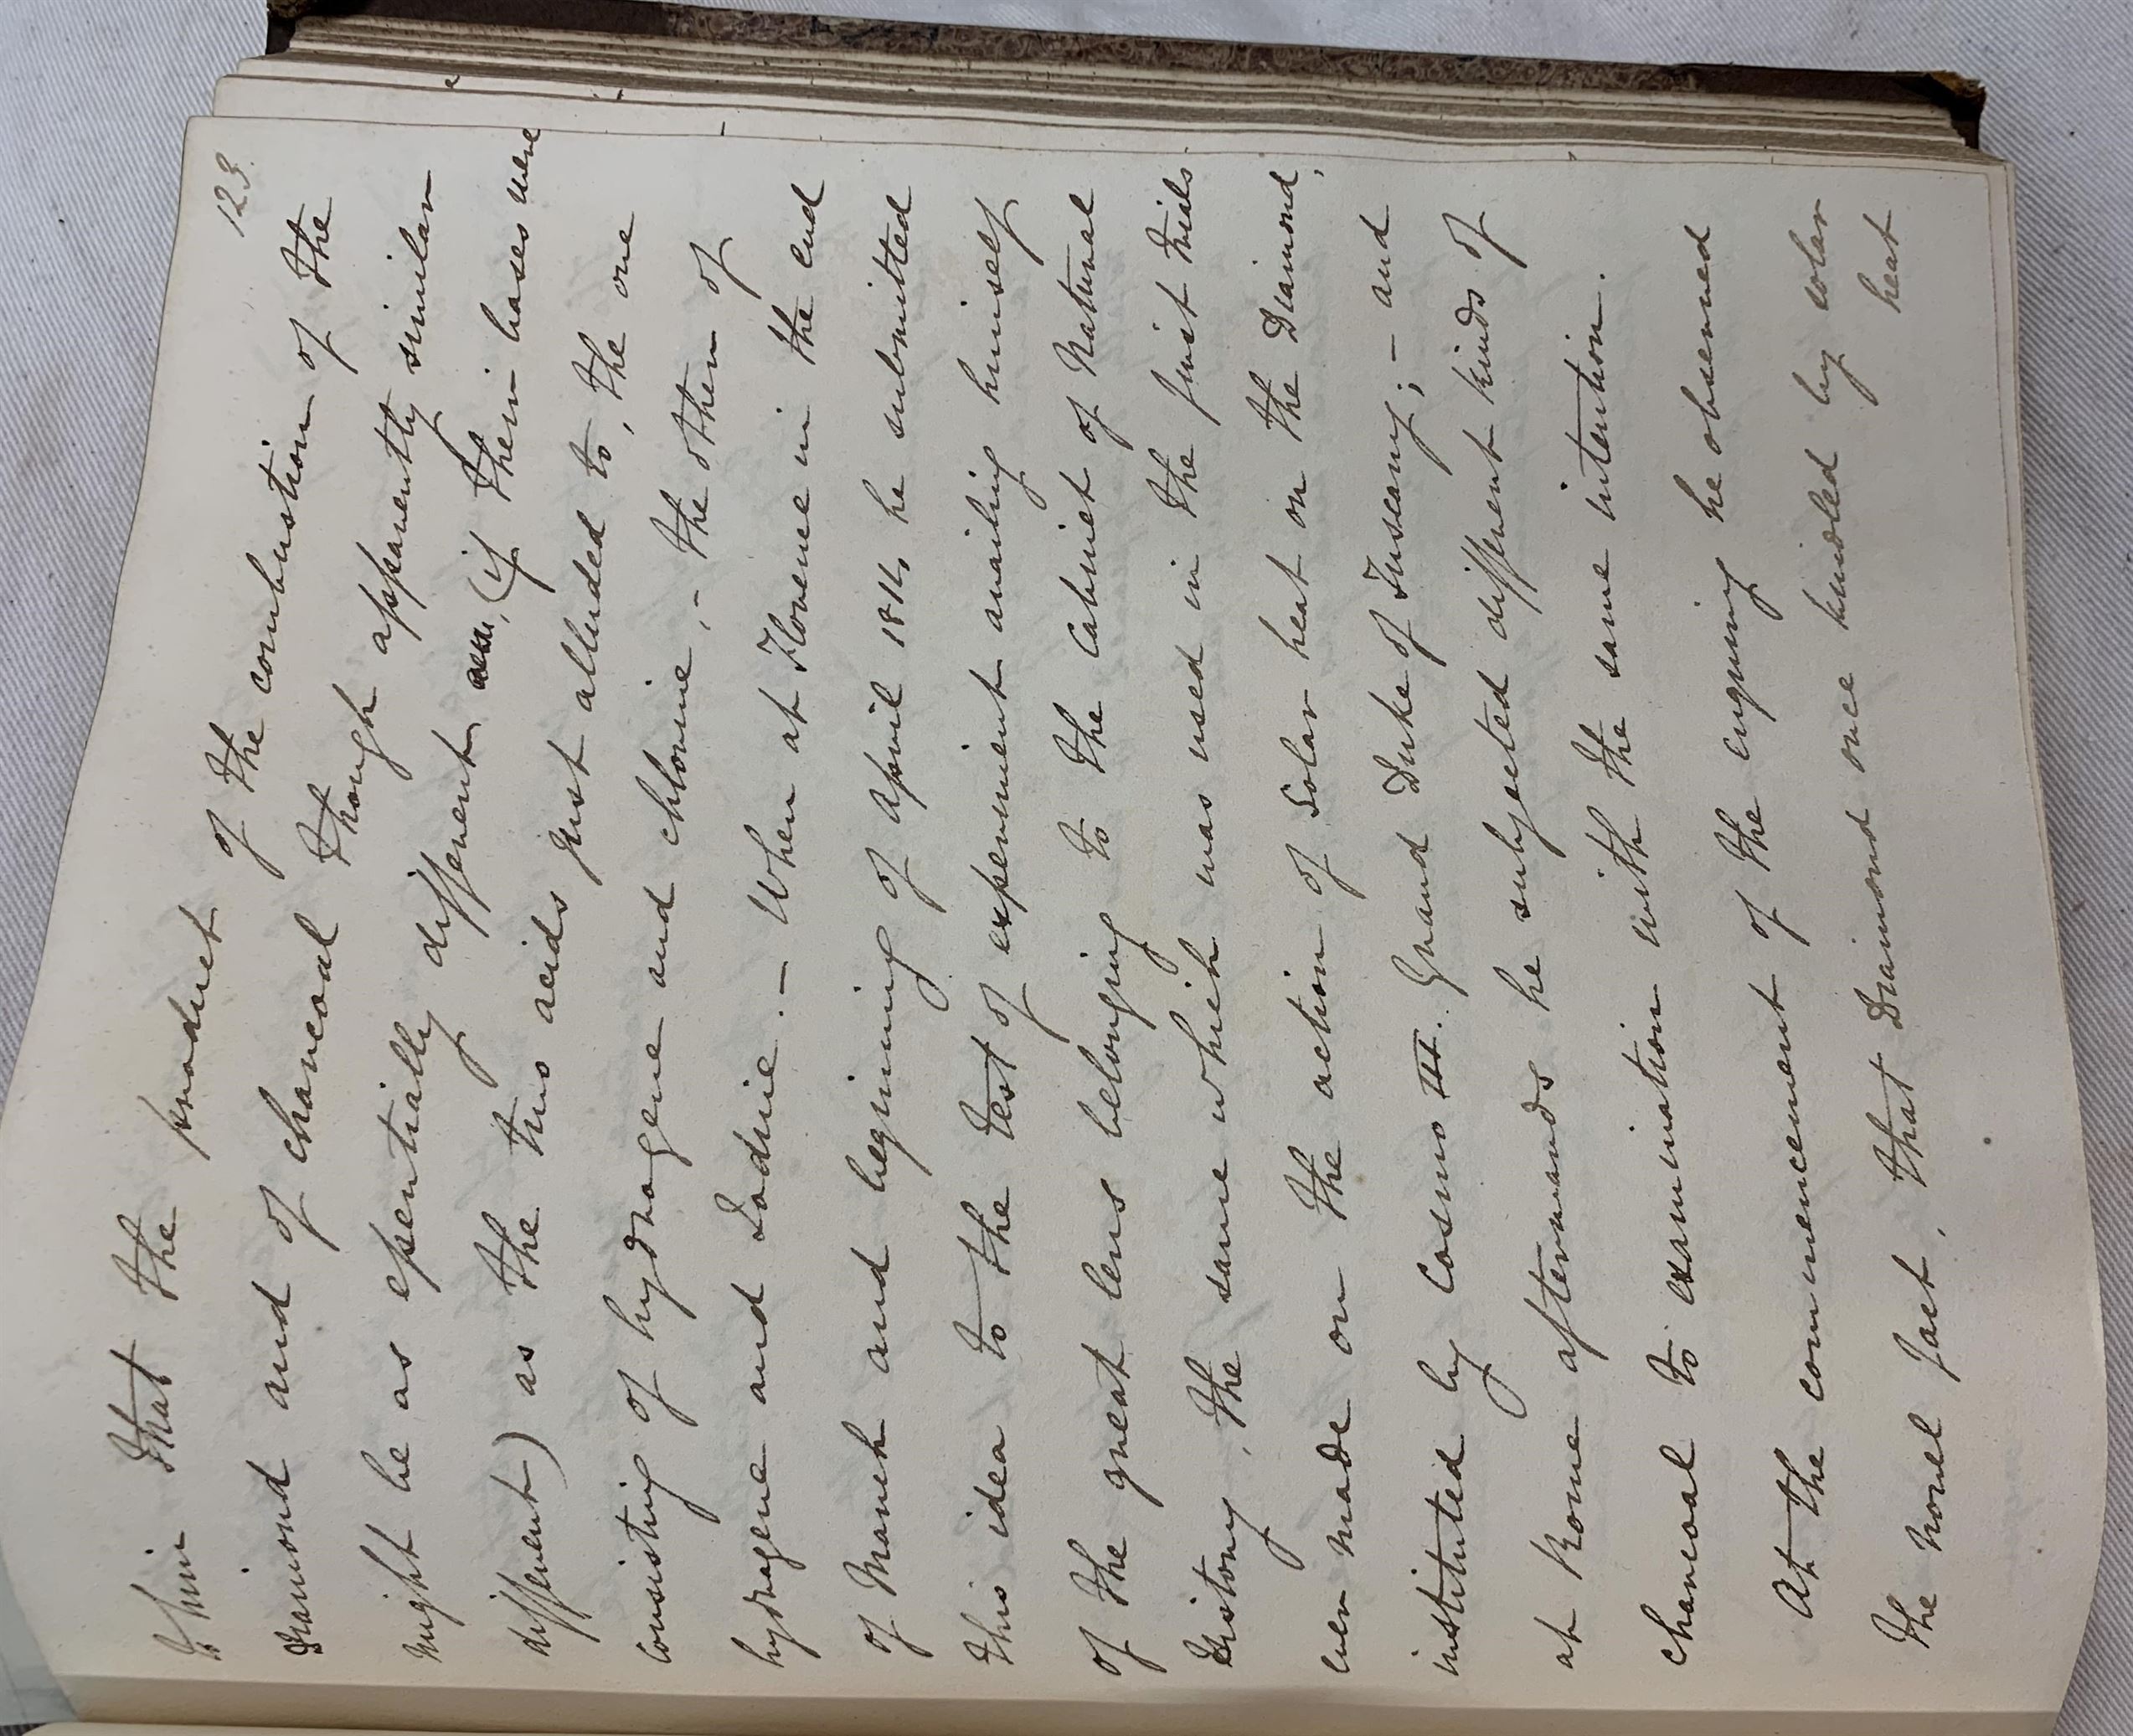 123.
to him that the product of the combustion of the
Diamond and of charcoal though apparently similar
might be as essentially different, (if their bases were
different) as the two acids just alluded to, the one
consisting of hydrogene and chlorine, - the other of
hydrogene and Iodine. - When at Florence in the end
of March and beginning of April 1814, he submitted
this idea to the test of experiment availing himself
of the great lens belonging to the Cabinet of Natural
History, the same which was used in the first trials
ever made on the action of Solar heat on the Diamond,
instituted by Cosmo III. Grand Duke of Tuscany; - and
at Rome afterwards he subjected different kinds of
charcoal to examination with the same intention.
At the commencement of the enquiry he observed
the novel fact, that Diamond once kindled by solar
heat